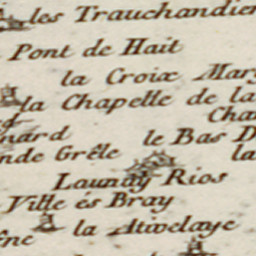 les Trauchandier
Pont de Hait
la Croix Mar
la Chapelle de la
Cha
nard
le Bas D
nde Grêle
la
Launay Rios
Ville és Bray
la Atwelaye
ène